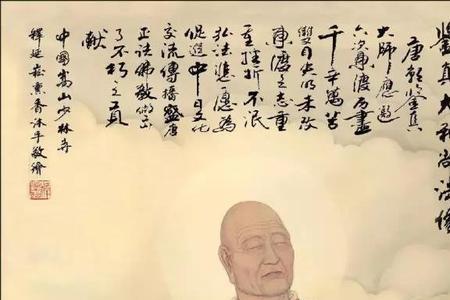 鑒真大和尚法像
唐朝鑒真
大師應邀
六次東渡歷盡
千辛萬苦
雙目失明未改
東渡之志重
挫折不泯
弘法 願為
促進中日文化
交流傳播盛唐
正法佛教做出
了不朽之貢
獻
中國嵩山少林寺
釋延 熏香沐手敬繪